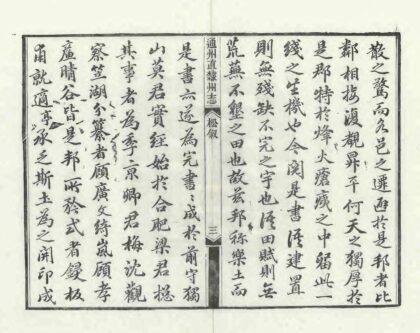 散之鶩而名邑之遷避於是邦者比
鄰相接復覩昇平何天之獨厚於
是郡特於烽火瘡痍之中留此一
綫之生機也今閱是書徑建置
則無殘缺不完之宇也徑田賦則無
荒蕪不墾之田也故茲邦稱樂土而
通州直隸州志
楊叙
三
是書亦遂為完書書成於前守獨
山莫君實經始於合肥梁君總
其事者為季京卿君梅沈觀
察笠湖分纂者顧廣文綺嵐顧孝
廉晴谷皆是邦所矜式者鋟板
甫就適予承乏斯土為之開印成